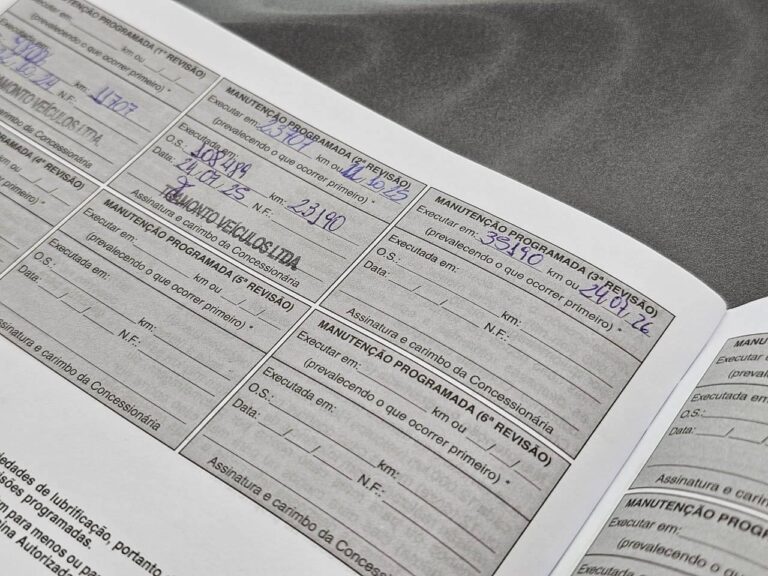 MANUTENÇÃO PROGRAMADA (1ª REVISÃO)
km ou __/__/__
(prevalecendo o que ocorrer primeiro) *
km: 11707
N.F.:
VEÍCULOS LTDA.
Assinatura e carimbo da Concessionária
MANUTENÇÃO PROGRAMADA (2ª REVISÃO)
Executar em: 23707 km ou 12/10/25
(prevalecendo o que ocorrer primeiro) *
Executada em:
O.S.: 108479
Data: 24/07/25 km: 23190
N.F.:
VEÍCULOS LTDA.
Assinatura e carimbo da Concessionária
MANUTENÇÃO PROGRAMADA (3ª REVISÃO)
Executar em: 35190 km ou 24/07/26
(prevalecendo o que ocorrer primeiro) *
Executada em:
O.S.:
Data: __/__/__ km:
N.F.:
Assinatura e carimbo da Concessionária
PROGRAMADA (4ª REVISÃO)
km ou __/__/__
ocorrer primeiro) *
km:
N.F.:
da Concessionária
MANUTENÇÃO PROGRAMADA (5ª REVISÃO)
km ou __/__/__
(prevalecendo o que ocorrer primeiro) *
km:
N.F.:
Assinatura e carimbo da Concessionária
MANUTENÇÃO PROGRAMADA (6ª REVISÃO)
Executar em: km ou __/__/__
(prevalecendo o que ocorrer primeiro) *
Executada em:
O.S.:
Data: __/__/__ km:
N.F.:
Assinatura e carimbo da Concessionária
edades de lubrificação, portanto
isões programadas.
m para menos ou pa
ina Autorizad
MANU
Executar e
(prevale
Executada em
O.S.:
Data: __/__/__
Assinatura e carin
MANUTENÇÃO PROG
Executar em:
(prevalecendo o
Executada em:
O.S.:
Data: __/__/__